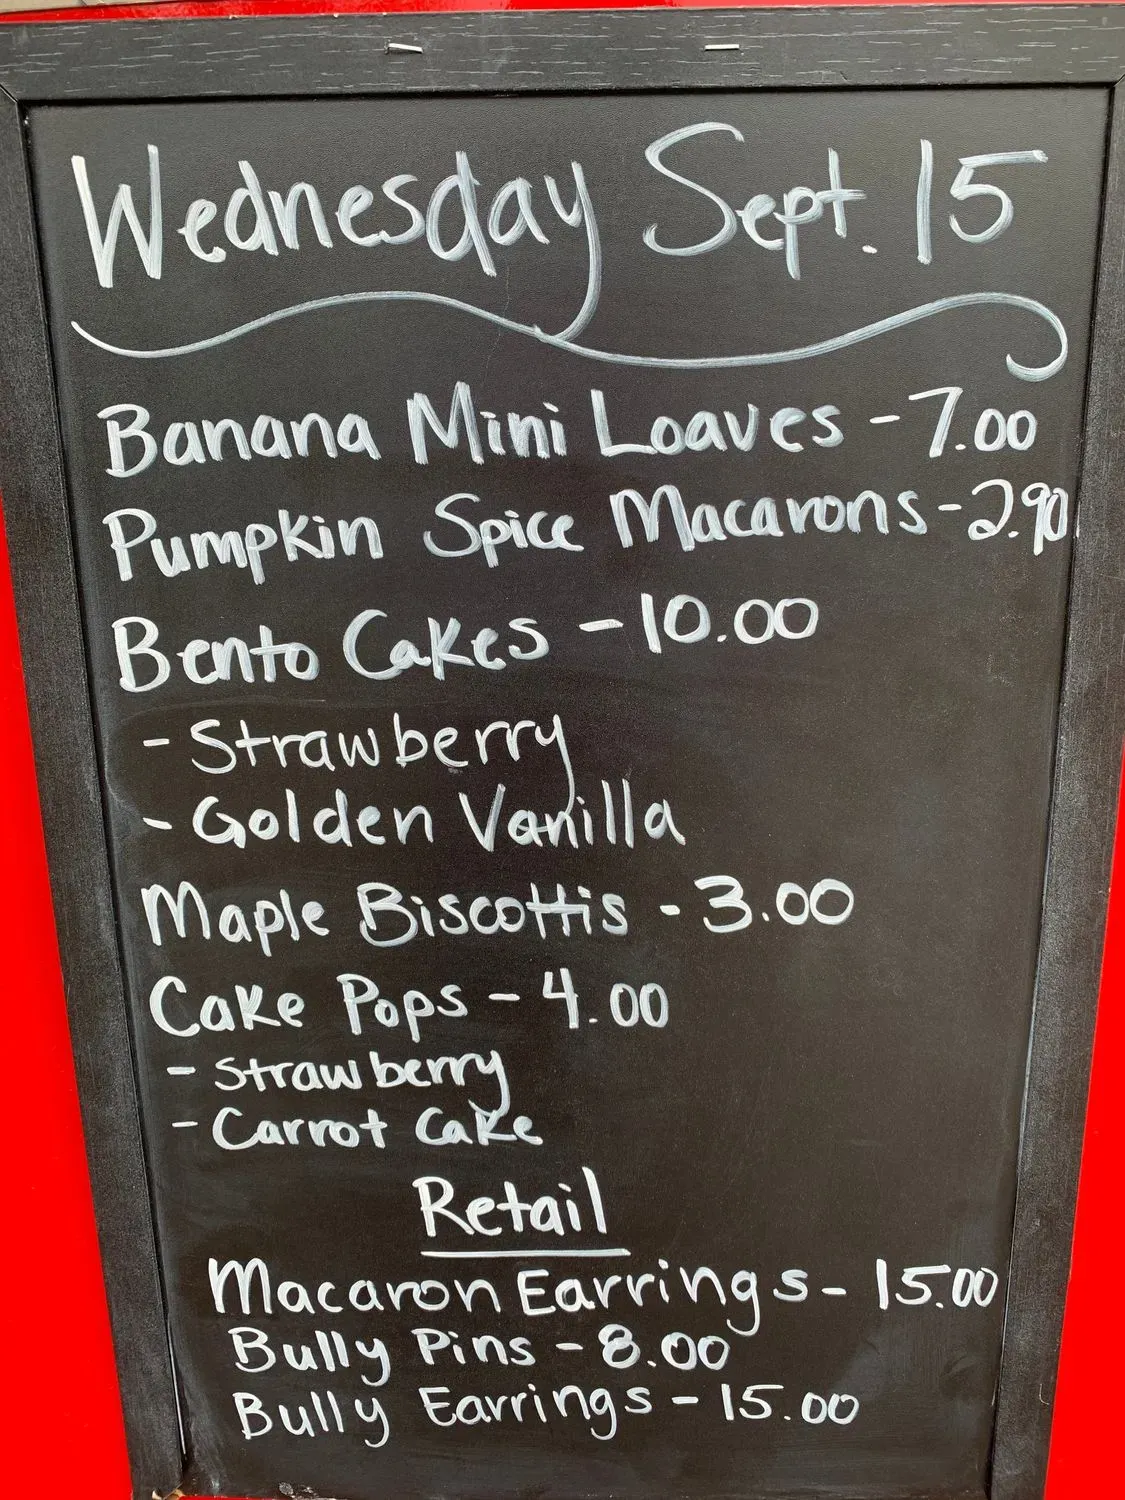 Wednesday Sept. 15
Banana Mini Loaves - 7.00
Pumpkin Spice Macarons - 2.90
Bento Cakes - 10.00
- Strawberry
- Golden Vanilla
Maple Biscottis - 3.00
Cake Pops - 4.00
- Strawberry
- Carrot Cake
Retail
Macaron Earrings - 15.00
Bully Pins - 8.00
Bully Earrings - 15.00